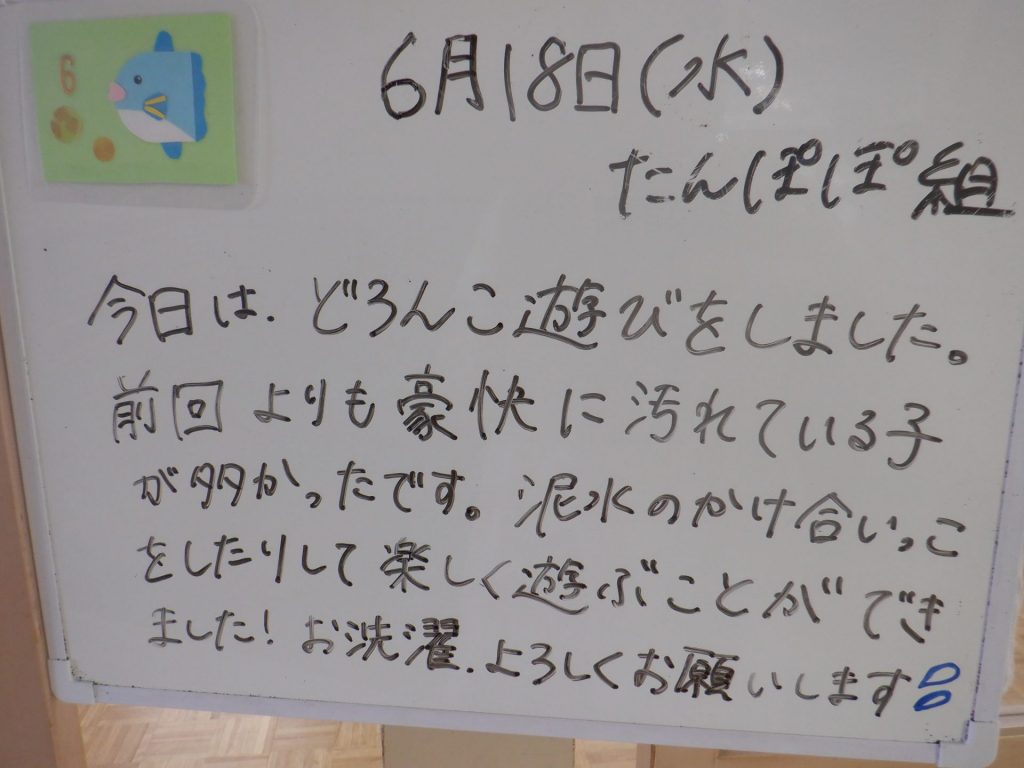 6
6月18日(水)
たんぽぽ組
今日は、どろんこ遊びをしました。
前回よりも豪快に汚れている子
が多かったです。泥水のかけ合いっこ
をしたりして楽しく遊ぶことができ
ました!お洗濯、よろしくお願いします